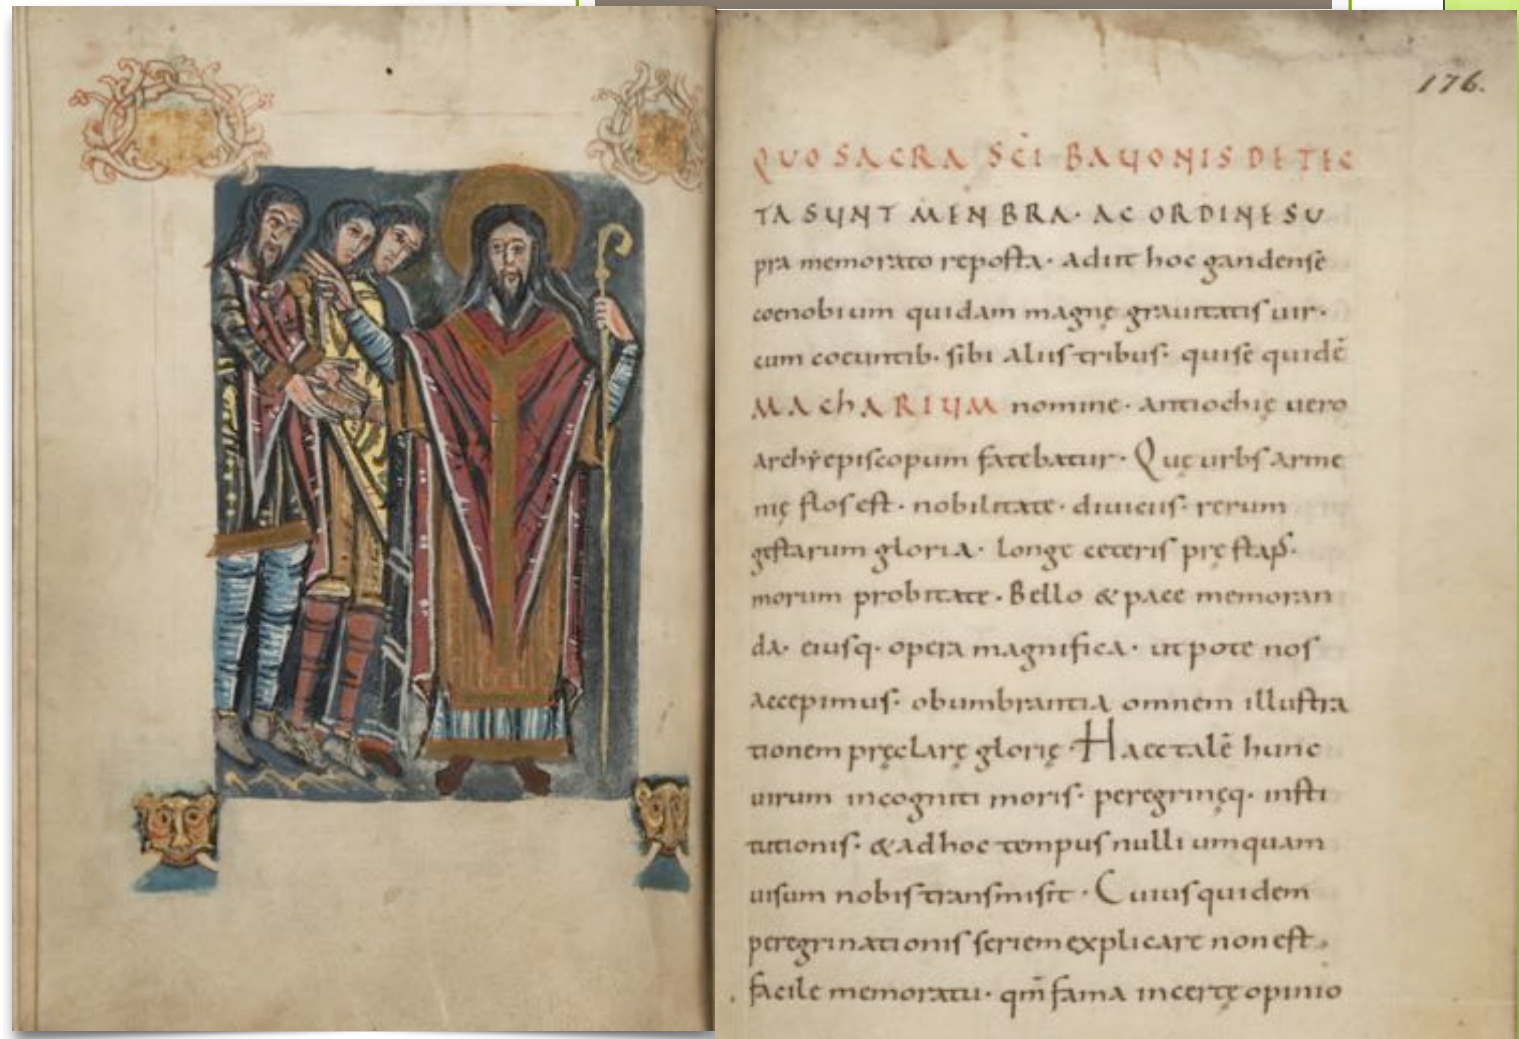 176.
QUO SACRA SC̄I BAVONIS DETEC
TA SUNT MENBRA· AC ORDINE SU
pra memorato reposta· adiit hoc gandensē
coenobium quidam magnę grauitatis uir·
cum coeuntib· sibi aliis tribus· qui se quidē
MAchARIUM nomine· antiochię uero
archyepiscopum fatebatur· Quę urbs arme
nię flos est· nobilitate· diuitiis· rerum
gestarum gloria· longe ceteris pręstās·
morum probitate· Bello & pace memoran
da· eiusq· opera magnifica· ut pote nos
accepimus· obumbrantia omnem illustra
tionem pręclarę glorię· Haec talē hunc
uirum incogniti moris· peregrinęq· insti
tutionis· & ad hoc tempus nulli umquam
uisum nobis transmisit· Cuius quidem
peregrinationis seriem explicare non est
facile memoratu· qm̄ fama incertę opinio